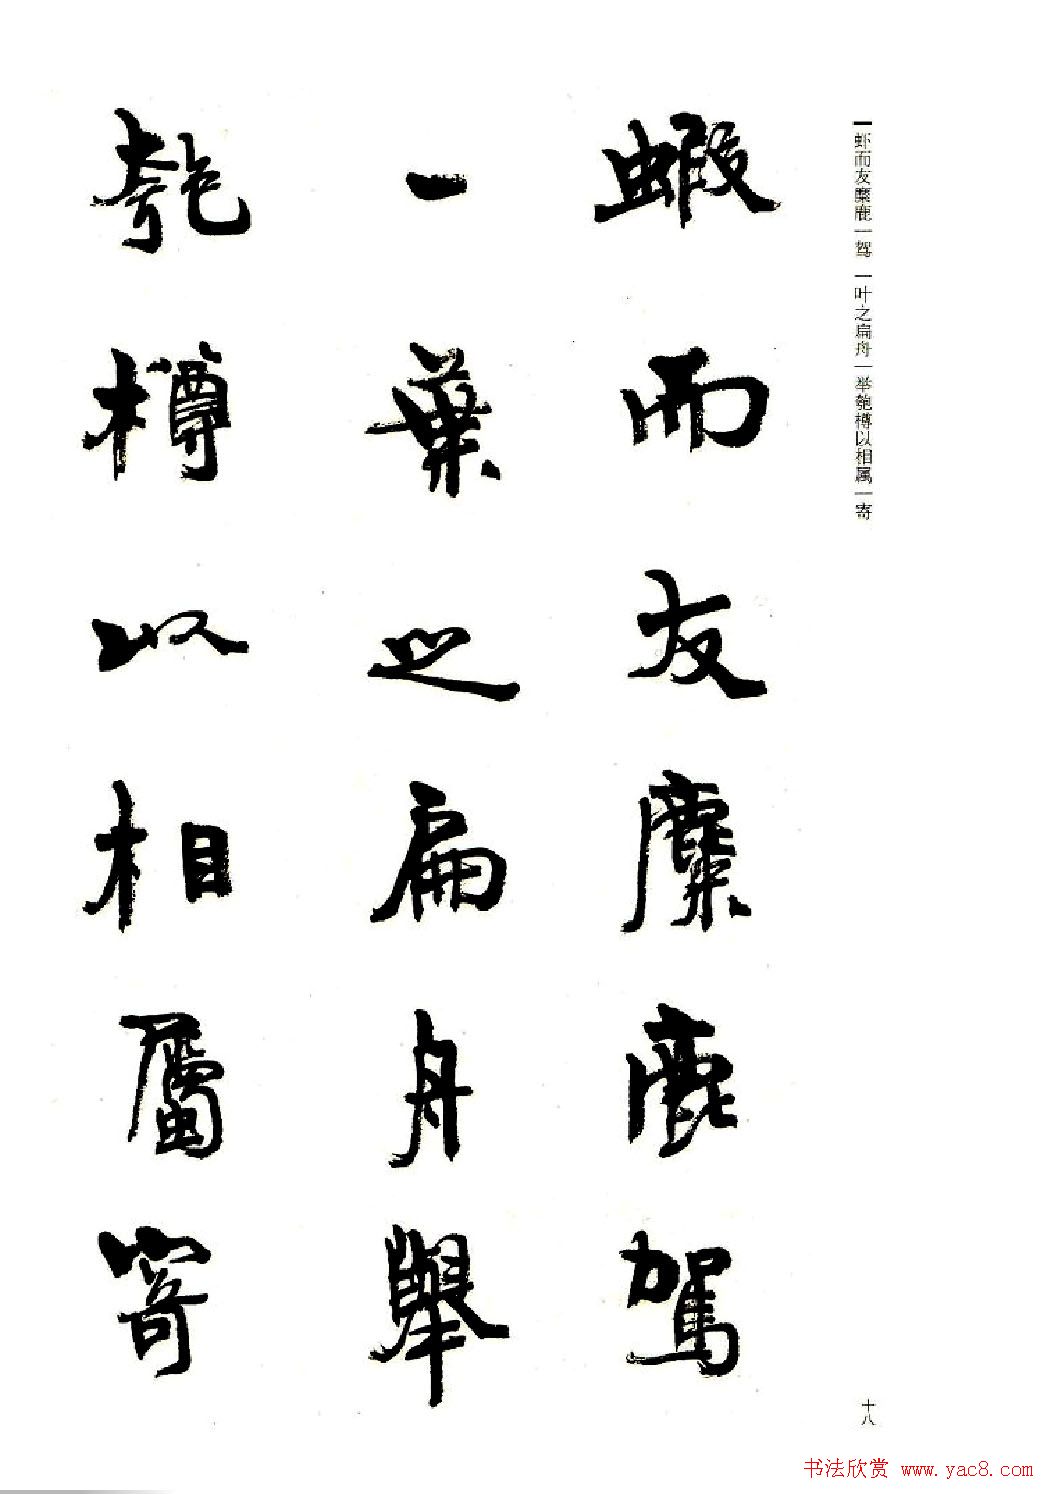 虾而友麋鹿｜驾 一叶之扁舟｜举匏樽以相属｜寄
蝦而友麋鹿駕
一葉之扁舟舉
匏樽以相屬寄
十八
书法欣赏 www.yac8.com